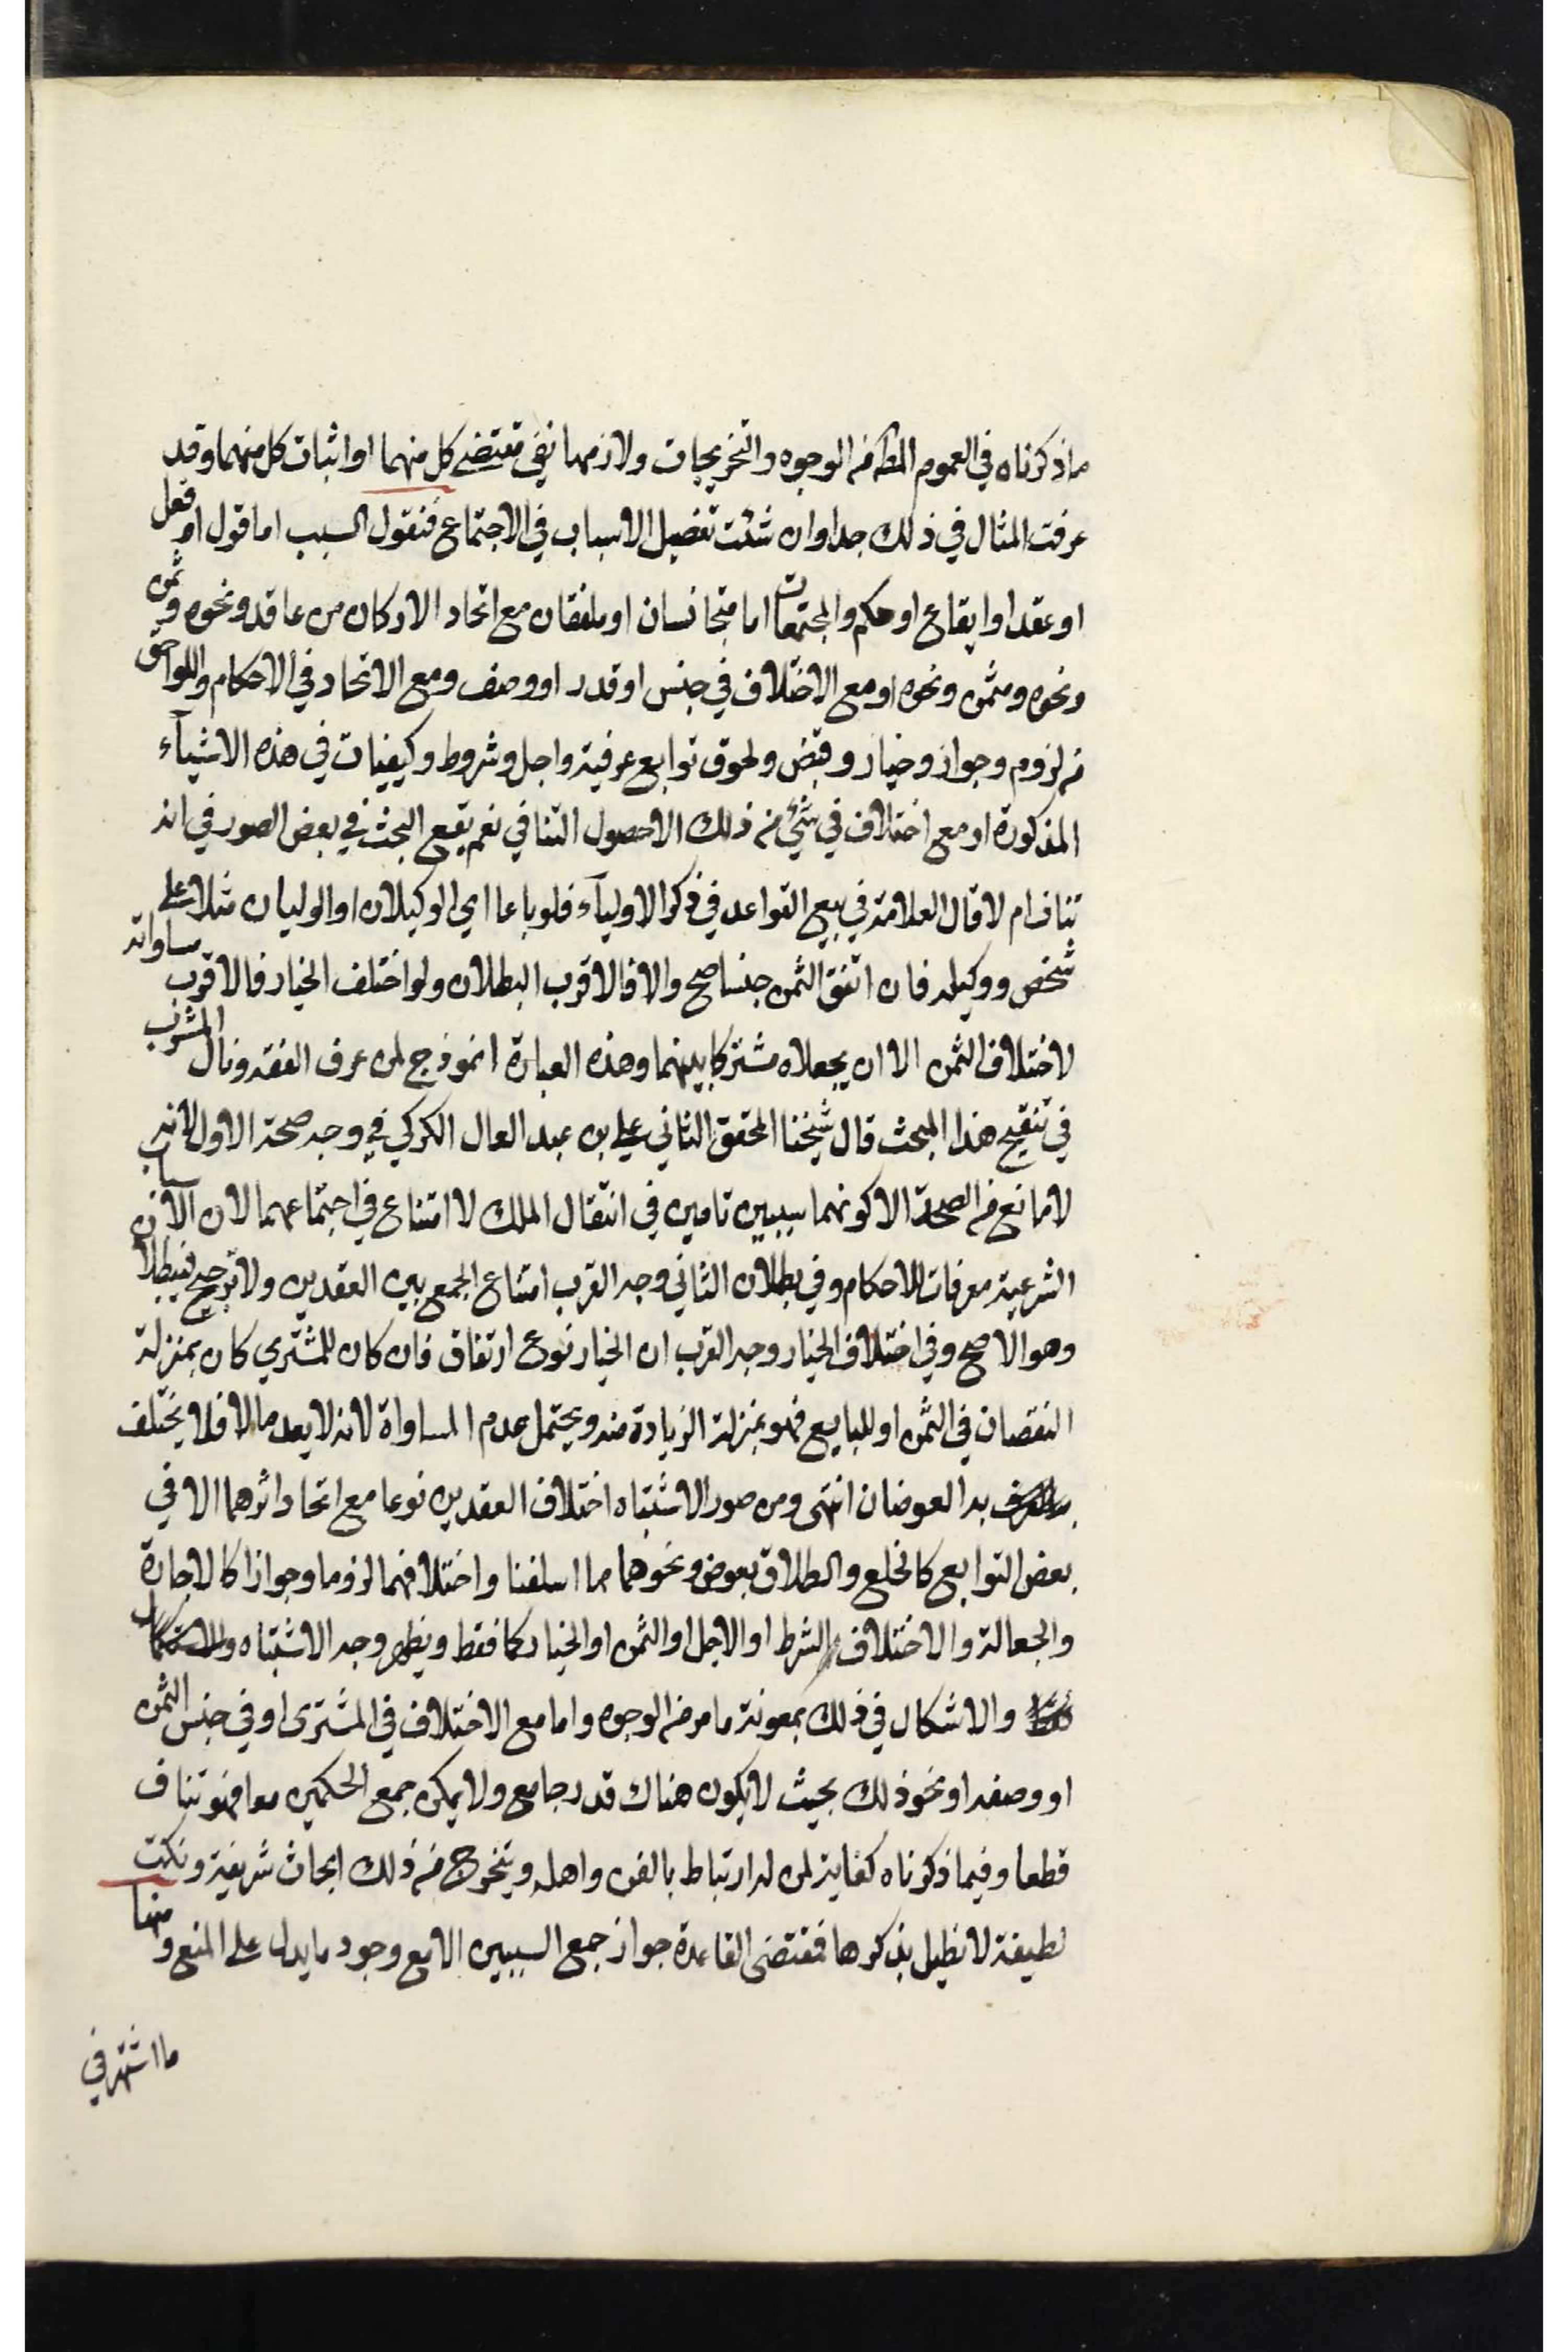 ماذكرناه في العموم المط من الوجوه والتخريجات ولازمها نفي مقتضى كل منهما او اثبات كل منهما وقد
عرفت المثال في ذلك جدا وان شئت تفصيل الاسباب في الاجتماع فنقول السبب اما قول او فعل
او عقد او ايقاع او حكم والمجتمعات اما متجانسان او ملفقان مع اتحاد الاركان من عاقد ونحوه وثمن
ونحوه ومثمن ونحوه او مع الاختلاف في جنس او قدر او وصف ومع الاتحاد في الاحكام واللواحق
من لزوم وجواز وخيار وقبض ولحوق توابع عرفية واجل وشروط وكيفيات في هذه الاشيآء
المذكورة او مع اختلاف في شئ من ذلك الاحصول التنافي نعم يقع البحث في بعض الصور في انه
تناف ام لا قال العلامة في بيع القواعد في ذكر الاوليآء فلو باعا اي الوكيلان او الوليان مثلا على
شخص ووكيله فان اتفق الثمن جنسا صح والا فالاقرب البطلان ولو اختلف الخيار فالاقرب مساواته
لاختلاف الثمن الا ان يجعلاه مشتركا بينهما وهذه العبارة انموذج لمن عرف الفقه ونال المشرب
في تنقيح هذا المبحث قال شيخنا المحقق الثاني علي بن عبد العال الكركي في وجه صحة الاول لانه
لا مانع من الصحة الا كونهما سببين تامين في انتقال الملك لا امتناع في اجتماعهما لان الاسباب
الشرعية معرفات للاحكام وفي بطلان الثاني وجه القرب امتناع الجمع بين العقدين ولا ترجيح فيبطلا
وهو الاصح وفي اختلاف الخيار وجه القرب ان الخيار نوع ارتفاق فان كان للمشتري كان بمنزلة
النقصان في الثمن او للبايع فهو بمنزلة الزيادة منه ويحتمل عدم المساواة لانه لا يعد مالا فلا يختلف
به العوضان انتهى ومن صور الاشتباه اختلاف العقدين نوعا مع اتحاد اثرهما الا في
بعض التوابع كالخلع والطلاق بعوض ونحوهما مما اسلفنا واختلافهما لزوما وجوازا كالاجارة
والجعالة والاختلاف الشرط او الاجل او الثمن او الخيار كما فقط ويظهر وجه الاشتباه
والاشكال في ذلك بمعونة ما مر من الوجوه واما مع الاختلاف في المشترى او في جنس الثمن
او وصفه او نحو ذلك بحيث لا يكون هناك قدر جامع ولا يمكن جمع الحكمين معا فهو تناف
قطعا وفيما ذكرناه كفاية لمن له ارتباط بالفن واهله ويتخرج من ذلك ابحاث شريفة ونكت
لطيفة لا نطيل بذكرها فمقتضى القاعدة جواز جمع السببين الا مع وجود ما يدل على المنع ومنها
ما اشتهر في